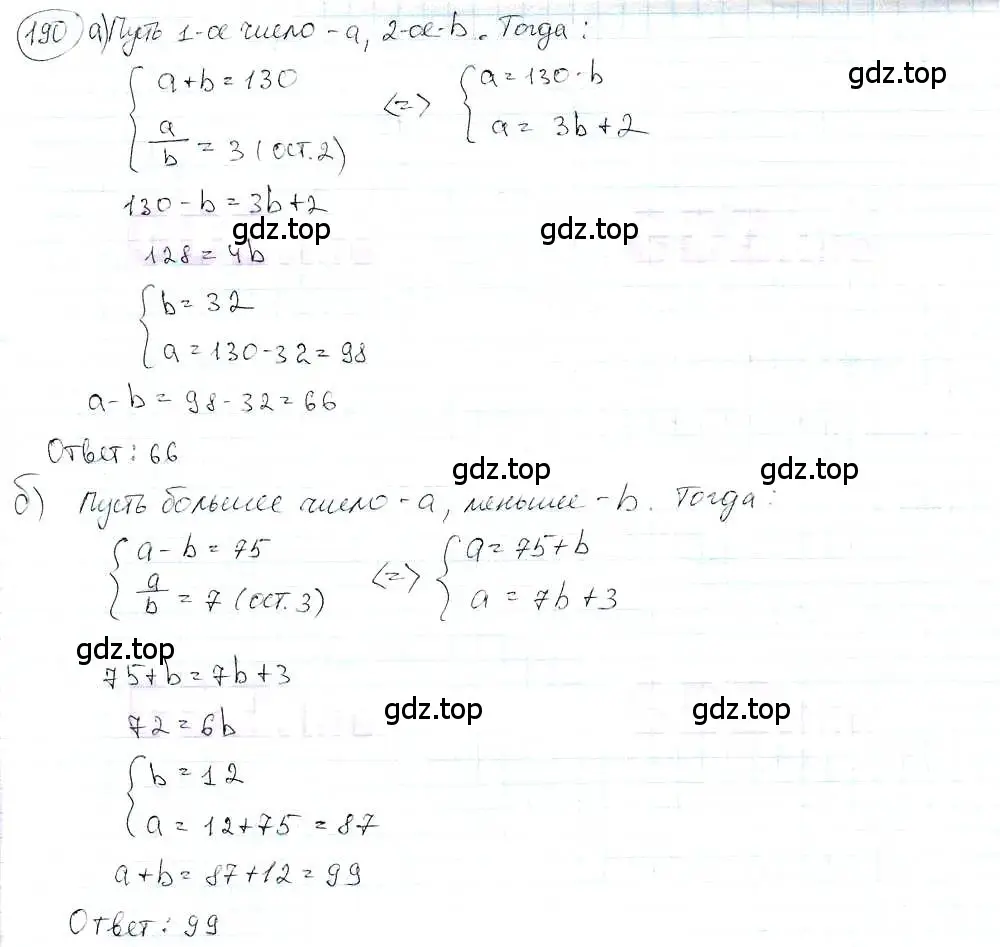 190 а) Пусть 1-ое число - a, 2-ое - b. Тогда:
{ a + b = 130
a/b = 3 (ост. 2)
<=>
{ a = 130 - b
a = 3b + 2
gdz.top
130 - b = 3b + 2
gdz.top gdz.top
128 = 4b
{ b = 32
a = 130 - 32 = 98
a - b = 98 - 32 = 66
Ответ: 66
gdz.top gdz.top
б) Пусть большее число - a, меньшее - b. Тогда:
{ a - b = 75
a/b = 7 (ост. 3)
<=>
{ a = 75 + b
a = 7b + 3
gdz.top
75 + b = 7b + 3
gdz.top gdz.top
72 = 6b
{ b = 12
a = 12 + 75 = 87
a + b = 87 + 12 = 99
Ответ: 99